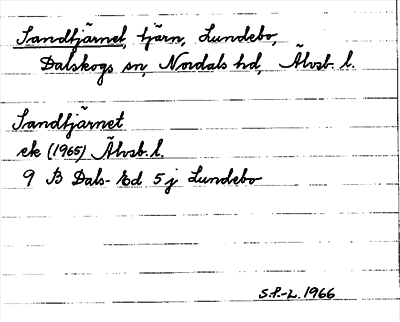 Sandtjärnet, tjärn, Lundebo,
Dalskogs sn, Nordals hd, Älvsb. l.
Sandtjärnet
ek (1965) Älvsb. l.
9 B Dals-Ed 5 j Lundebo
S.F.-L. 1966